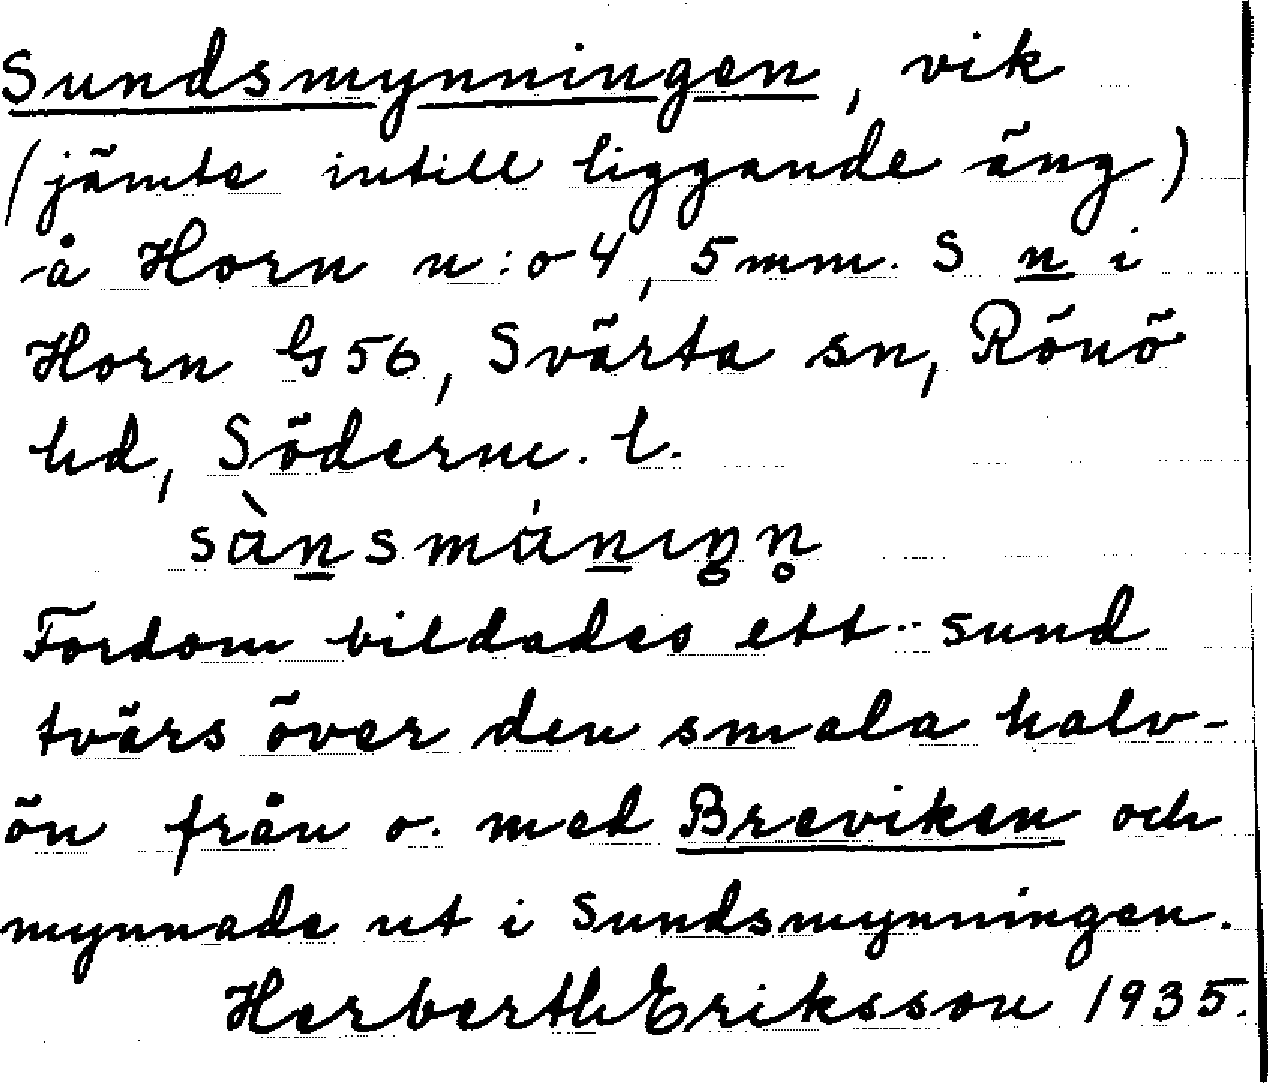 Sundsmynningen, vik
(jämte intill liggande äng)
å Horn n:o 4, 5 mm. S n i
Horn G 56, Svärta sn, Rönö
hd, Söderm. l.
Fordom bildades ett sund
tvärs över den smala halv-
ön från o. med Breviken och
mynnade ut i Sundsmynningen.
Herbert Eriksson 1935.